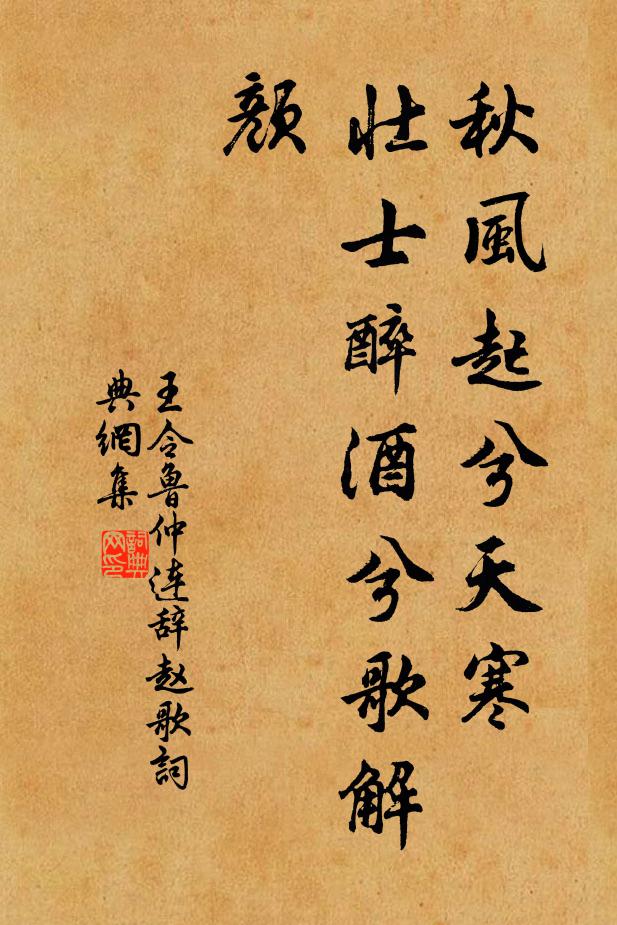 秋風起兮天寒
壯士醉酒兮歌解
顔
王令魯仲連辞赵歌詞
典網集
詞典
网印